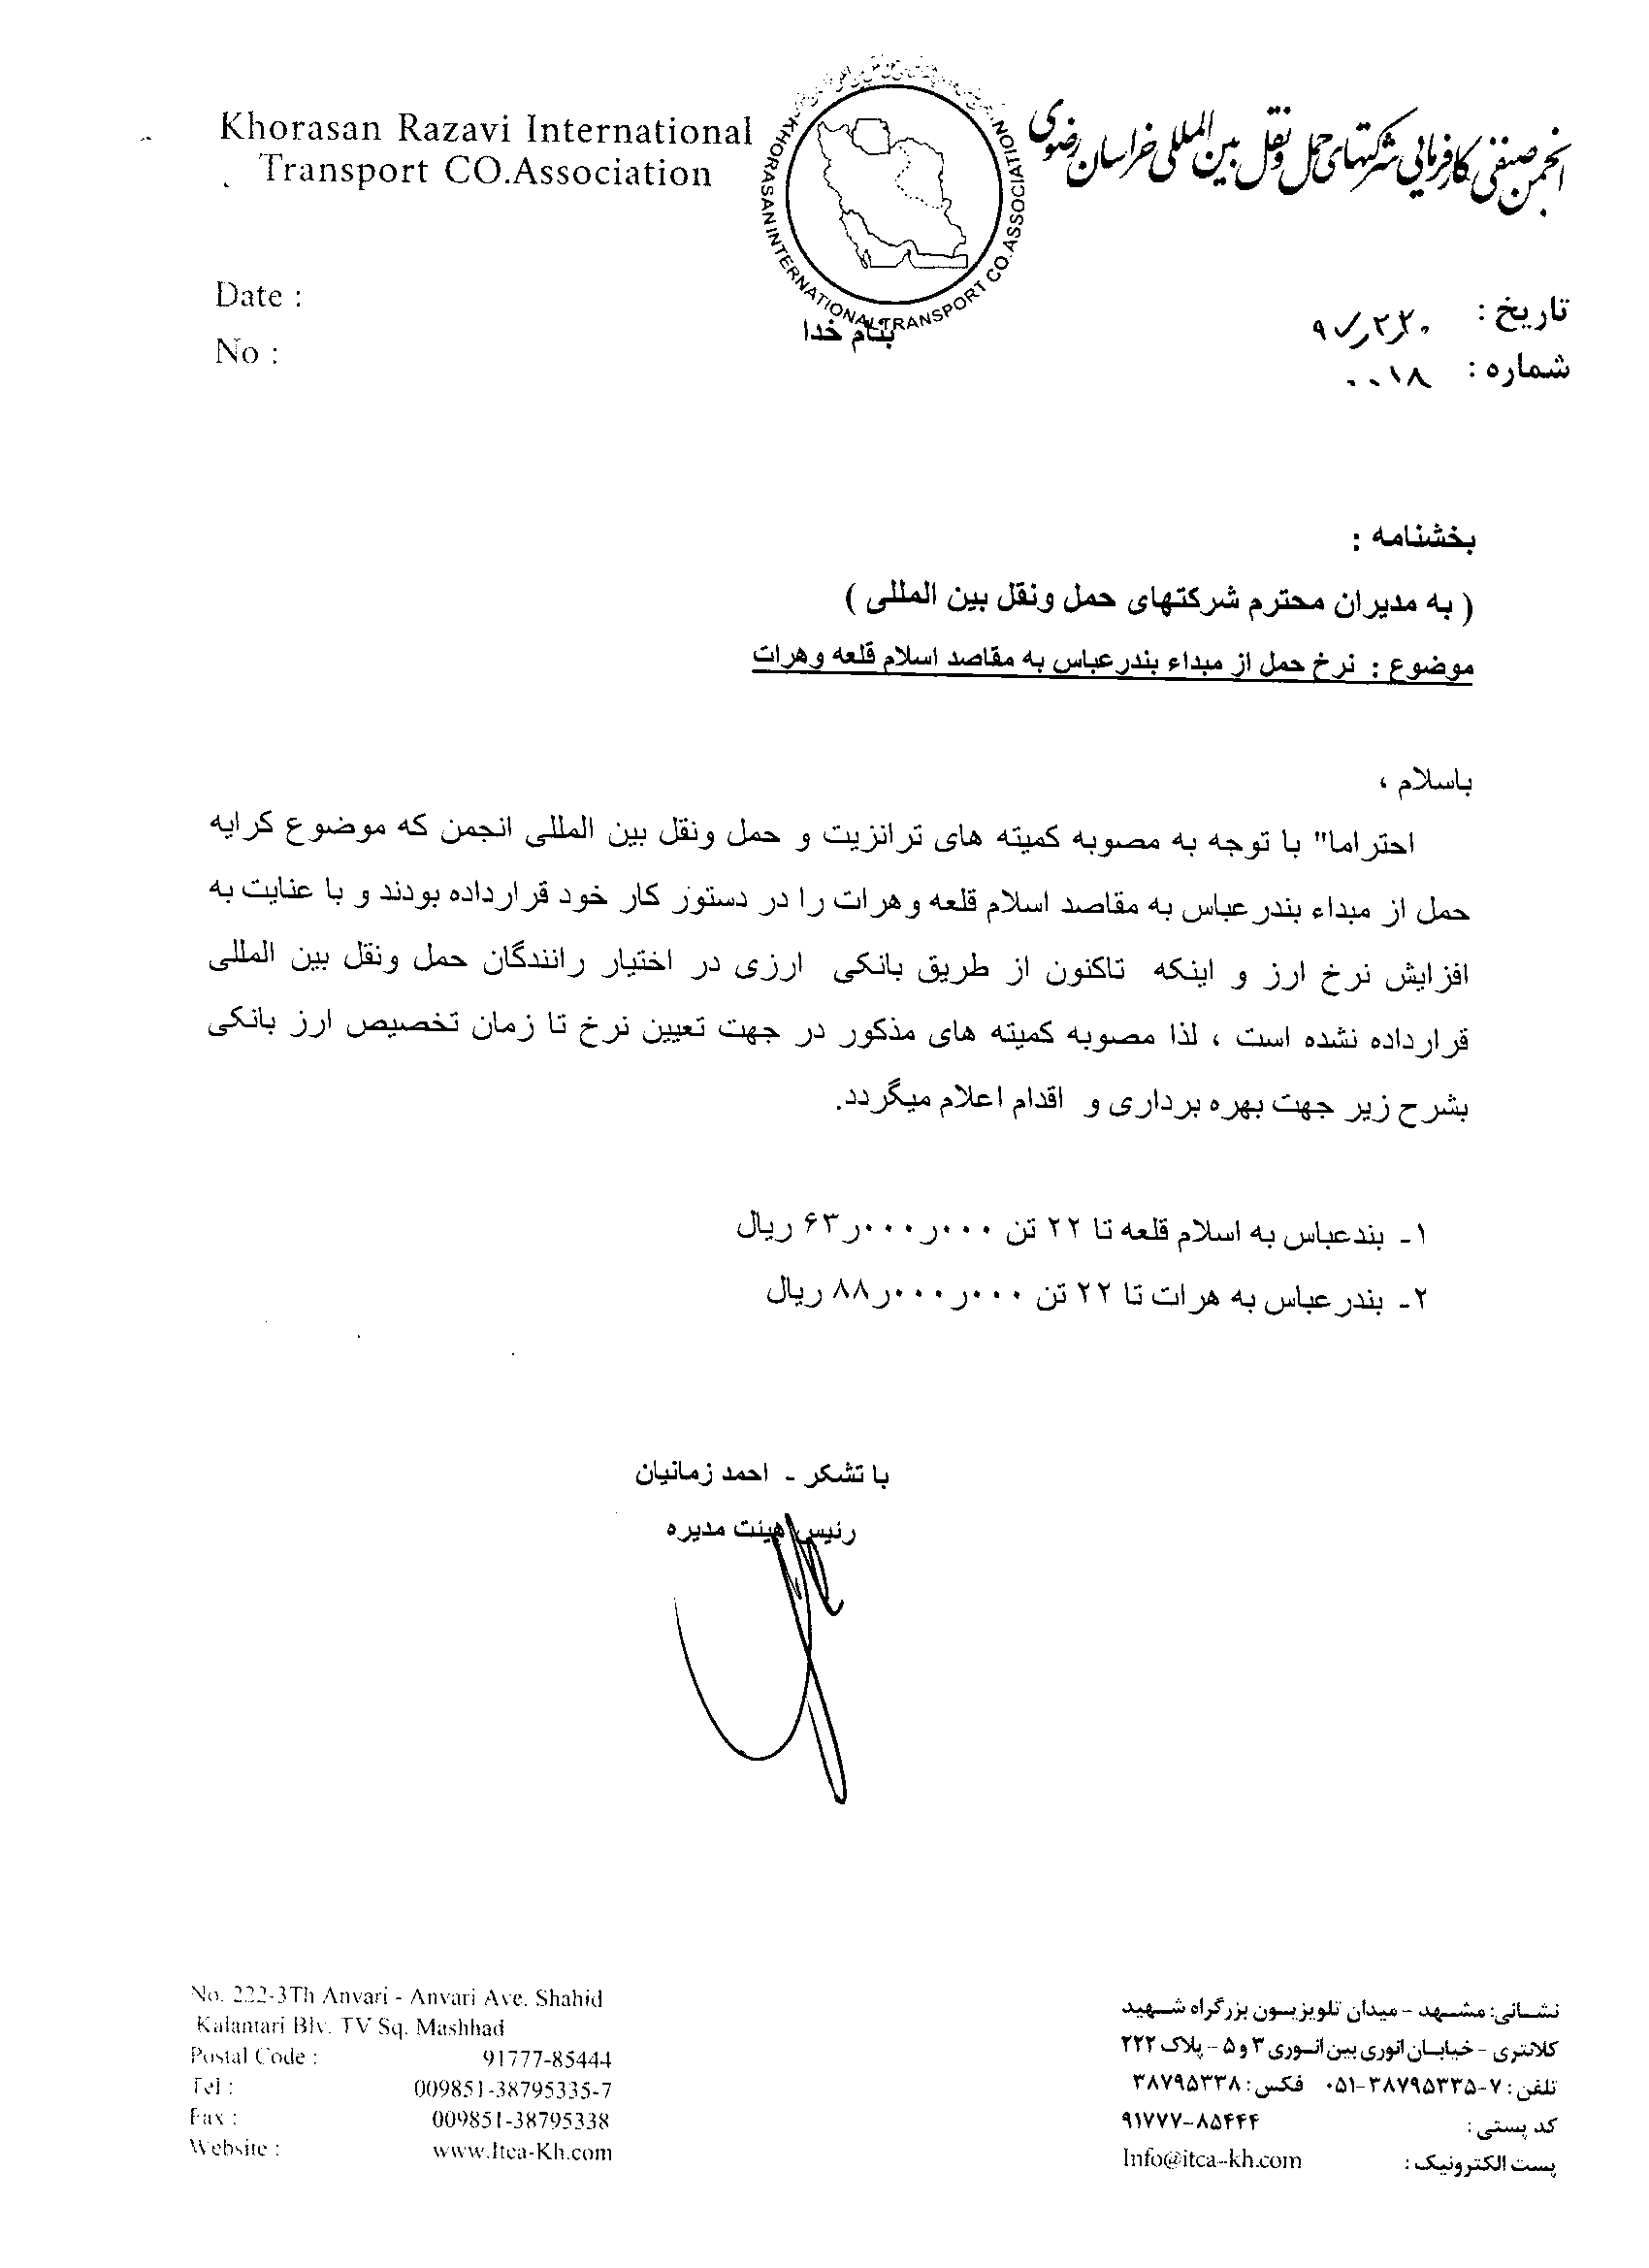 Khorasan Razavi International
Transport CO.Association
انجمن صنفی کارفرمایی شرکتهای حمل و نقل بین المللی خراسان رضوی
KHORASAN INTERNATIONAL TRANSPORT CO.ASSOCIATION
Date :
No :
بنام خدا
تاریخ :
شماره : ۰۰۱۸
بخشنامه :
( به مدیران محترم شرکتهای حمل ونقل بین المللی )
موضوع : نرخ حمل از مبداء بندرعباس به مقاصد اسلام قلعه وهرات
باسلام ،
احتراما" با توجه به مصوبه کمیته های ترانزیت و حمل ونقل بین المللی انجمن که موضوع کرایه
حمل از مبداء بندرعباس به مقاصد اسلام قلعه وهرات را در دستور کار خود قرارداده بودند و با عنایت به
افزایش نرخ ارز و اینکه تاکنون از طریق بانکی ارزی در اختیار رانندگان حمل ونقل بین المللی
قرارداده نشده است ، لذا مصوبه کمیته های مذکور در جهت تعیین نرخ تا زمان تخصیص ارز بانکی
بشرح زیر جهت بهره برداری و اقدام اعلام میگردد.
۱- بندعباس به اسلام قلعه تا ۲۲ تن ۶۳ر۰۰۰ر۰۰۰ ریال
۲- بندرعباس به هرات تا ۲۲ تن ۸۸ر۰۰۰ر۰۰۰ ریال
با تشکر - احمد زمانیان
رئیس هیئت مدیره
No. 222-3Th Anvari - Anvari Ave. Shahid
Kalantari Blv. TV Sq. Mashhad
Postal Code : 91777-85444
Tel : 009851-38795335-7
Fax : 009851-38795338
Website : www.Itca-Kh.com
نشانی: مشهد - میدان تلویزیون بزرگراه شهید
کلانتری - خیابان انوری بین انوری ۳ و ۵ - پلاک ۲۲۲
تلفن : ۷-۳۸۷۹۵۳۳۵-۰۵۱ فکس : ۳۸۷۹۵۳۳۸
کد پستی : ۹۱۷۷۷-۸۵۴۴۴
پست الکترونیک : Info@itca-kh.com